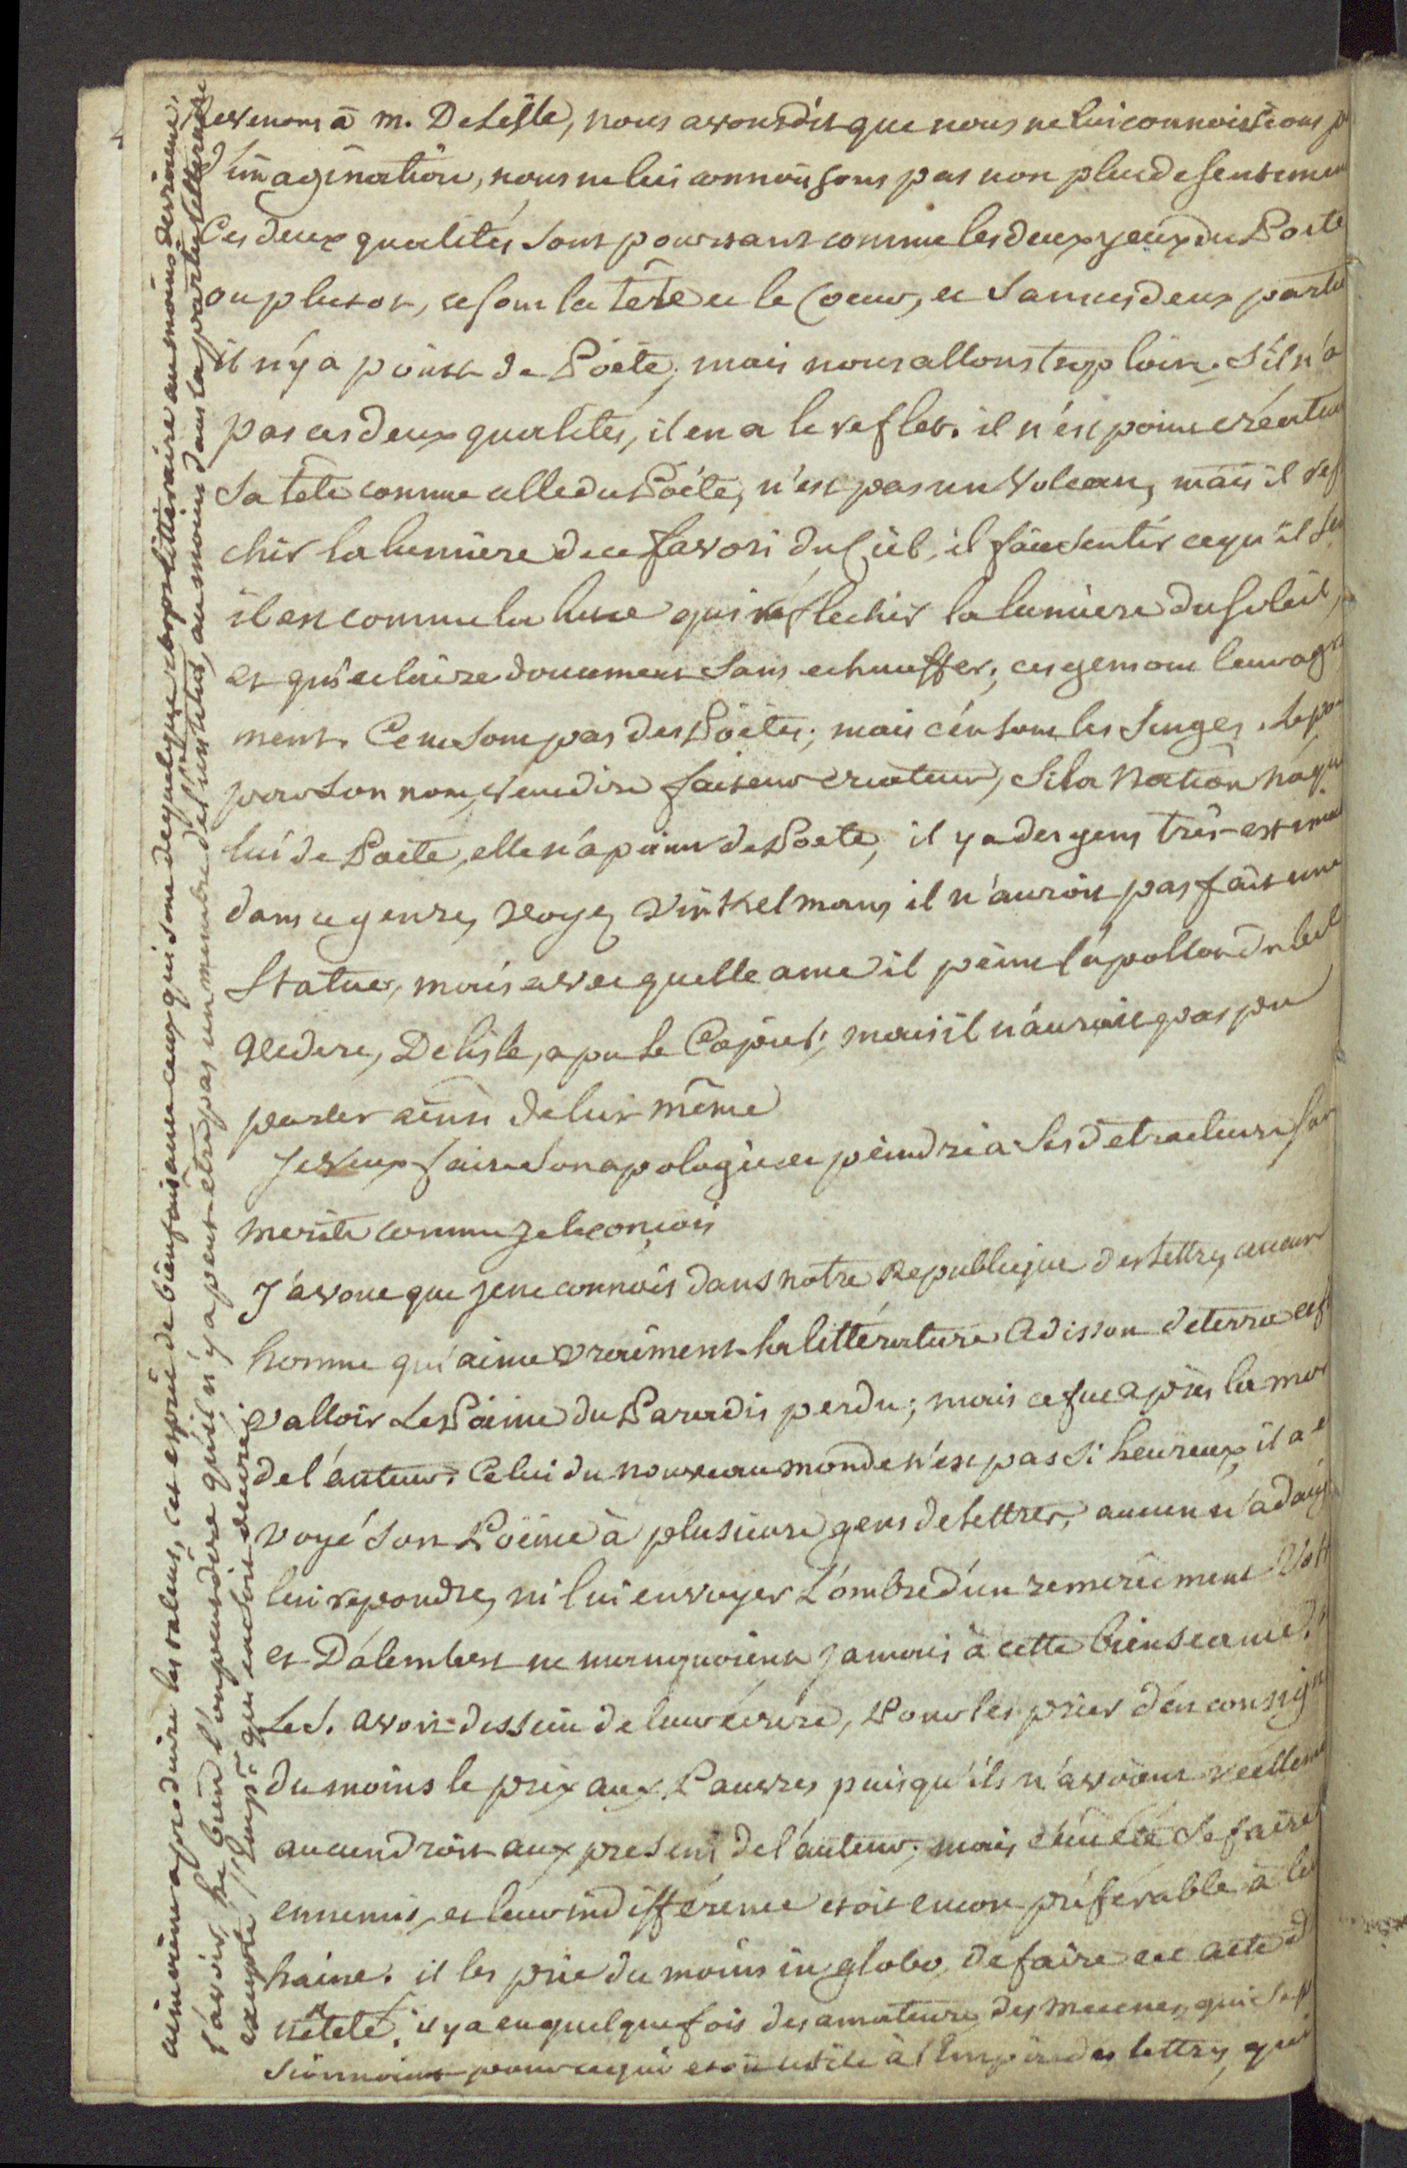 Revenons à m. DeLisle, nous avons dit que nous ne lui connoissions
d'imagination, nous ne lui connoissons pas non plus de sentiment
Ces deux qualités sont pourtant comme les deux yeux du Poete
ou plutot, ce sont la tête et le Coeur, et sans ces deux partie
il n'y a point de Poëte; mais nous allons trop loin. S'il n'a
pas ces deux qualités, il en a le reflet. il n'est point créateur
Sa tête comme celle du Poéte, n'est pas un Volcan, mais il ref
chit la lumiere de ce favori du Ciel, il fait sentir ce qu'il
il est comme la lune qui réflechit la lumiere du Soleil,
et qui eclaire doucement sans echauffer; ces gens ont leur agré
ment. Ce ne sont pas des Poëtes; mais c'en sont les Singes.
par son nom, veut dire faiseur createur, Si la Nation n'a que
lui de Poete, elle n'a point de Poete, il y a des gens très-estimé
dans ce genre, voyez Vinkelmans il n'auroit pas fait une
Statue, mais avec quelle ame il peint l'apollon du bel
vedere, Delisle, a pu le Copier; mais il n'auroit pas pu
parler ainsi de lui même
Je veux faire son apologie et peindre à Ses detracteurs son
merite comme je le conçois
J'avoue que je ne connois dans notre Republique des Lettres, aucun
homme qui aime vraiment la littérature Adisson deterra et f
valloir Le Poëme du Paradis perdu; mais ce fut après la mor
de l'auteur. Celui du nouveau monde n'est pas si heureux, il a e
voyé son Poëme à plusieurs gens de Lettres, aucun n'a daig
lui repondre, ni lui envoyer L'ombre d'un remerciment Volt
et D'alembert ne manquoient jamais à cette bienseance.
Le S. avoit dessein de leur écrire, Pour les prier d'en consign
du moins le prix aux Pauvres puisqu'ils n'avoient réellement
aucun droit aux presens de l'auteur; mais c'eut été Se faire
ennemis, et leur indifférence etoit encore préférable à le
haine. il les prie du moins in globo, de faire cet acte d
nêteté. il y a eu quelque fois des amateurs des mecenes, qui
sionnoient pour ce qui etoit utile à l'Empire des lettres, qui
aimoient a produire les talens, cet esprit de bienfaisance ceux qui sont de quelque corps littéraire au moins devroient
l'avoir, he bien! l'on peut dire qu'il n'y a peut-être pas un membre de l'institut, au moins dans la partie litteraire
excepté qui en soit